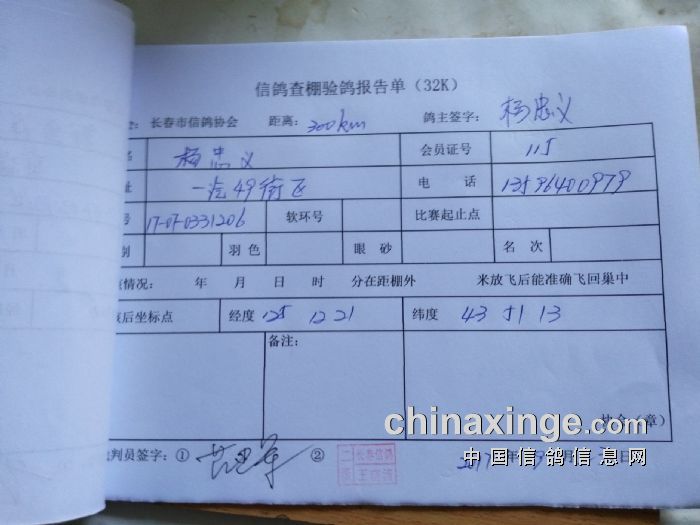 信鸽查棚验鸽报告单（32K）
长春市信鸽协会 距离：300km 鸽主签字：杨忠义
名 杨忠义 会员证号 115
址 一汽49街区 电话 13596400979
号 17-07-0331206 软环号 比赛起止点
别 羽色 眼砂 名次
情况： 年 月 日 时 分在距棚外 米放飞后能准确飞回巢中
后坐标点 经度 125 12 21 纬度 43 51 13
备注：
协会（章）
chinaxinge.com
判员签字：① ② 长春信鸽
2017年 月 日
中国信鸽信息网